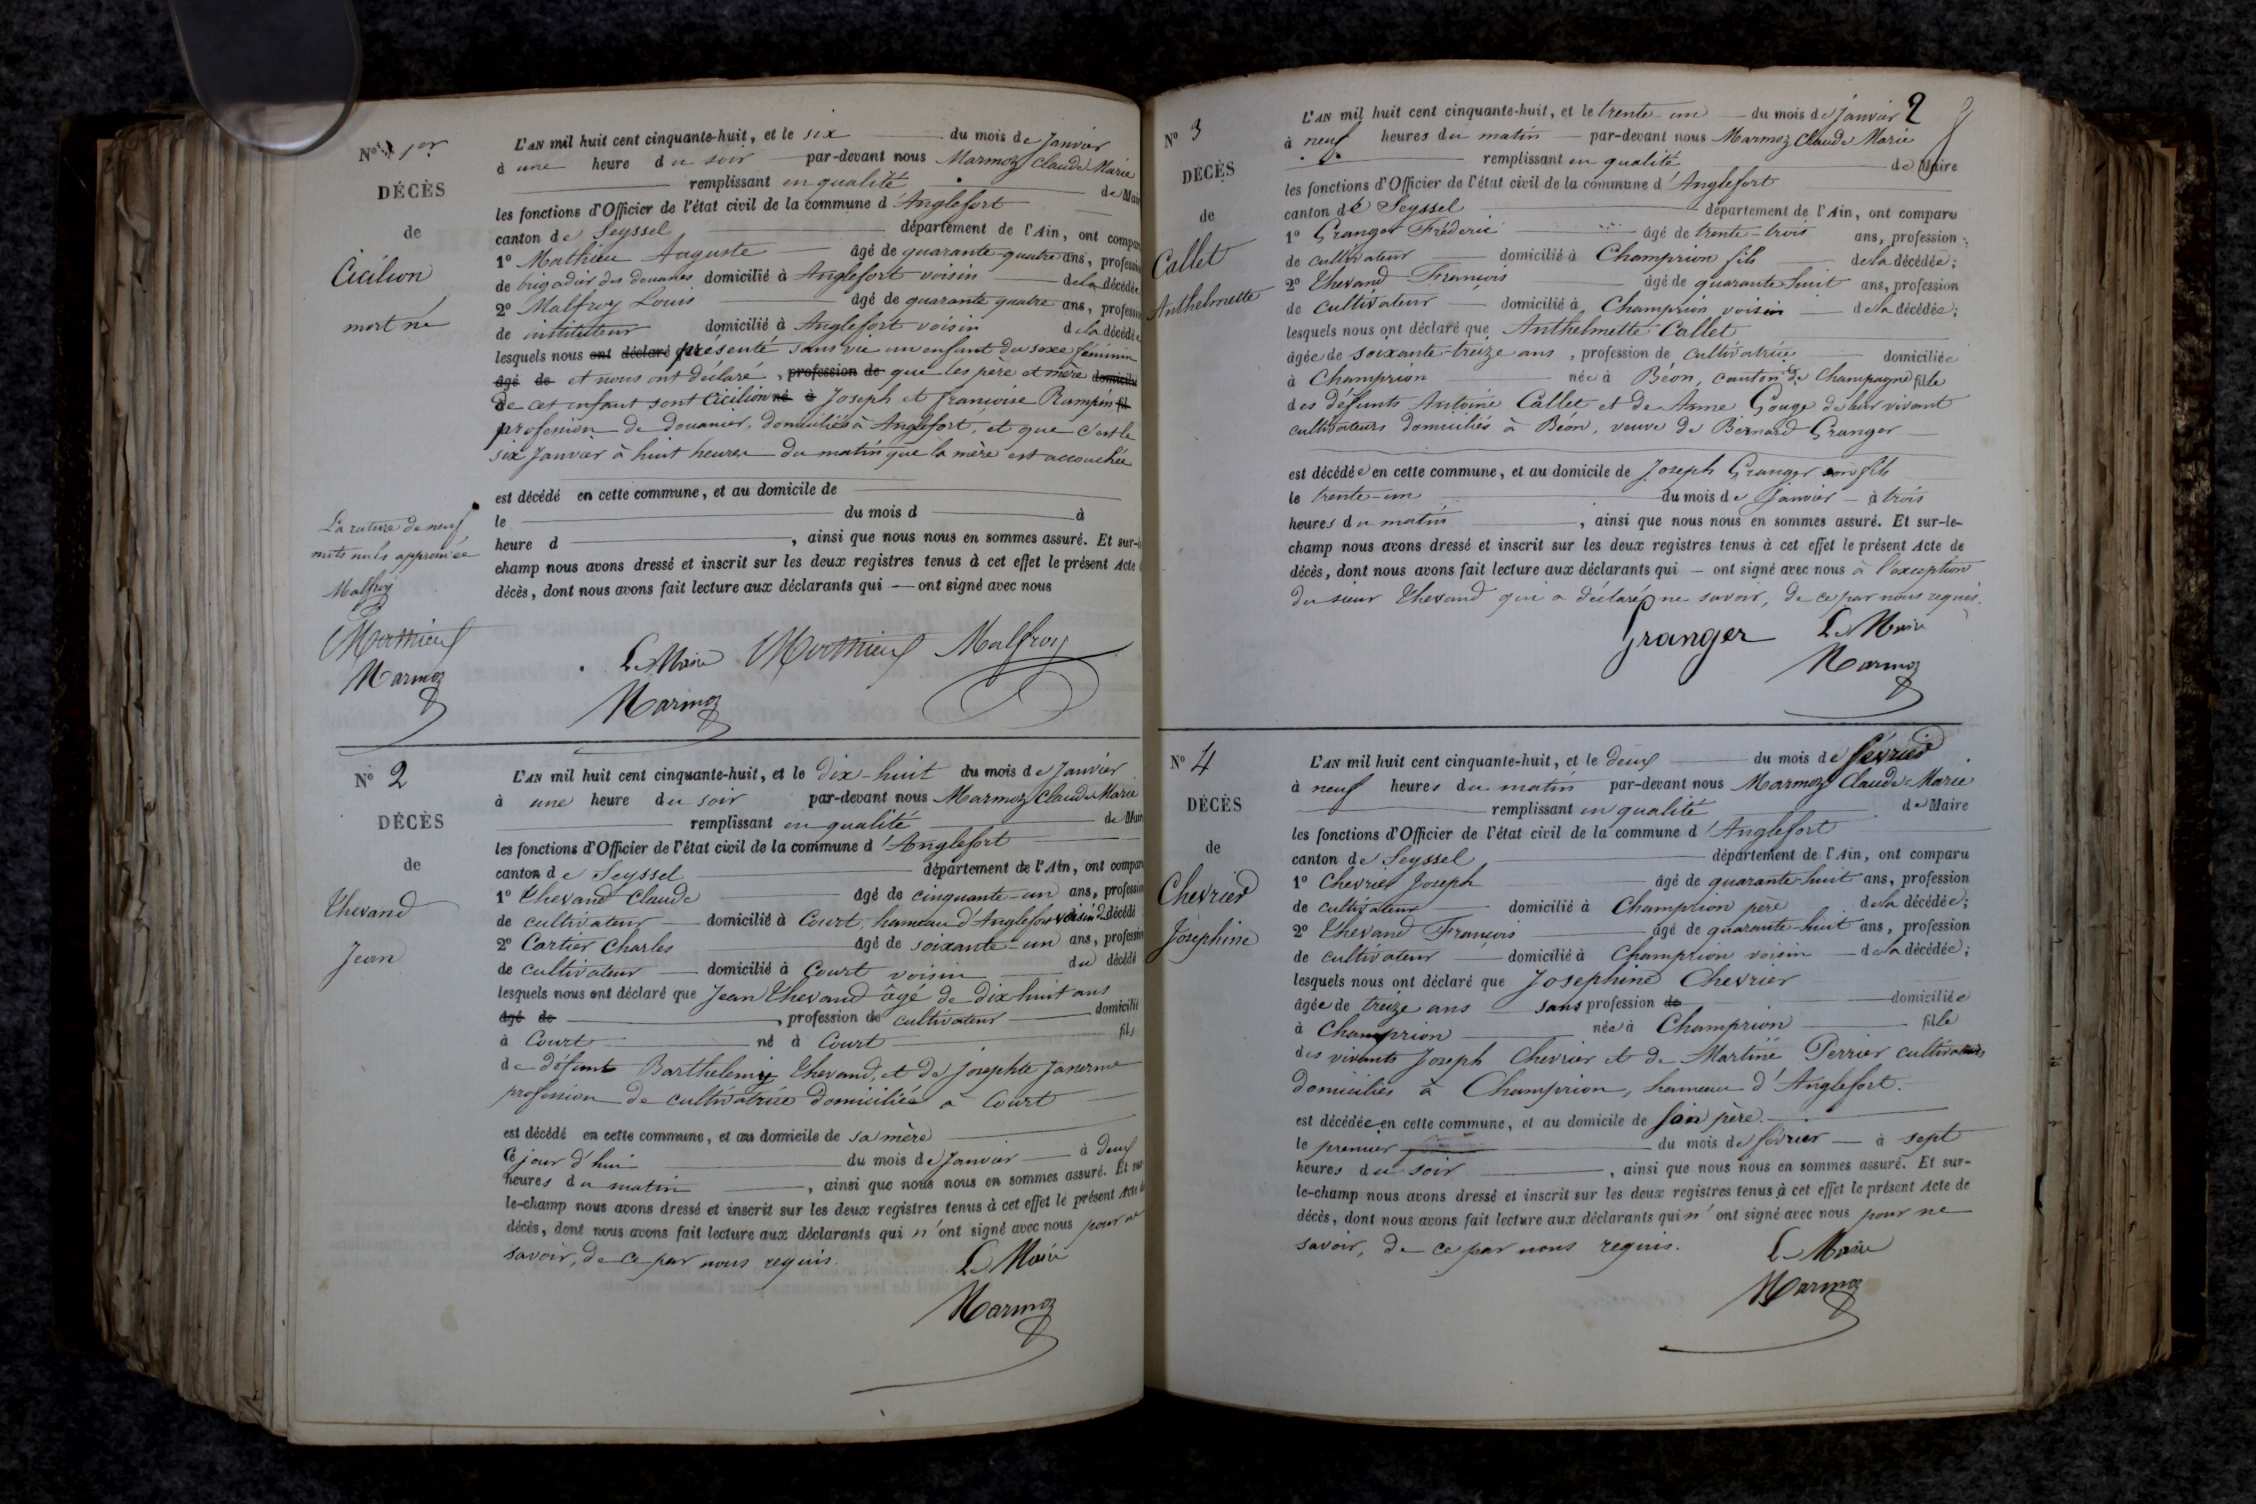 N° 1er
DÉCÈS
de
Cicilion
mort né
L'AN mil huit cent cinquante-huit, et le six du mois de Janvier
à une heure du soir par-devant nous Marmoz Claude Marie
remplissant en qualité de Mair
les fonctions d'Officier de l'état civil de la commune d'Anglefort
canton de Seyssel département de l'Ain, ont compar
1° Mathieu Auguste âgé de quarante quatre ans, profession
de brigadier des douanes domicilié à Anglefort voisin de la décédée
2° Malfroy Louis âgé de quarante quatre ans, profession
de instituteur domicilié à Anglefort voisin de la décédée
lesquels nous ont déclaré présenté sans vie un enfant du sexe féminin
âgé de et nous ont déclaré, profession de que les père et mère domicilié
de cet enfant sont Cicilion né à Joseph et Françoise Rumpin fil
profession de Douanier, domiciliés à Anglefort, et que c'est le
six Janvier à huit heures du matin que la mère est accouchée
est décédé en cette commune, et au domicile de
le du mois d à
heure d , ainsi que nous nous en sommes assuré. Et sur-le
champ nous avons dressé et inscrit sur les deux registres tenus à cet effet le présent Acte
décès, dont nous avons fait lecture aux déclarants qui — ont signé avec nous
La rature de neuf
mots nuls approuvée
Malfroy
Matthieu
Marmoz
Le Maire Matthieu Malfroy
Marmoz
N° 2
DÉCÈS
de
Thevand
Jean
L'AN mil huit cent cinquante-huit, et le dix-huit du mois de Janvier
à une heure du soir par-devant nous Marmoz Claude Marie
remplissant en qualité de Mair
les fonctions d'Officier de l'état civil de la commune d'Anglefort
canton de Seyssel département de l'Ain, ont compar
1° Thevand Claude âgé de cinquante-un ans, profession
de cultivateur domicilié à Court, hameau d'Anglefort voisin du décédé
2° Cartier Charles âgé de soixante-un ans, profession
de cultivateur domicilié à Court voisin du décédé
lesquels nous ont déclaré que Jean Thevand âgé de dix huit ans
âgé de , profession de cultivateur domicilié
à Court né à Court fils
de défunt Barthelemy Thevand, et de Josephte
profession de cultivatrice domiciliée à Court
est décédé en cette commune, et au domicile de sa mère
ce jour d'hui du mois de Janvier à deux
heures du matin , ainsi que nous nous en sommes assuré. Et sur
le-champ nous avons dressé et inscrit sur les deux registres tenus à cet effet le présent Acte de
décès, dont nous avons fait lecture aux déclarants qui n'ont signé avec nous pour ne
savoir, de ce par nous requis.
Le Maire
Marmoz
2
N° 3
DÉCÈS
de
Callet
Anthelmette
L'AN mil huit cent cinquante-huit, et le trente un du mois de Janvier
à neuf heures du matin par-devant nous Marmoz Claude Marie
remplissant en qualité de Maire
les fonctions d'Officier de l'état civil de la commune d'Anglefort
canton de Seyssel département de l'Ain, ont comparu
1° Granger Frédéric âgé de trente-trois ans, profession
de cultivateur domicilié à Champrion fils de la décédée;
2° Thevand François âgé de quarante huit ans, profession
de cultivateur domicilié à Champrion voisin de la décédée;
lesquels nous ont déclaré que Anthelmette Callet
âgée de soixante-treize ans, profession de cultivatrice domiciliée
à Champrion née à Béon, canton de Champagne fille
des défunts Antoine Callet et de Anne Gouge de leur vivant
cultivateurs domiciliés à Béon, veuve de Bernard Granger
est décédée en cette commune, et au domicile de Joseph Granger son fils
le trente-un du mois de Janvier à trois
heures du matin , ainsi que nous nous en sommes assuré. Et sur-le-
champ nous avons dressé et inscrit sur les deux registres tenus à cet effet le présent Acte de
décès, dont nous avons fait lecture aux déclarants qui — ont signé avec nous à l'exception
du sieur Thevand qui a déclaré ne savoir, de ce par nous requis.
Granger Le Maire
Marmoz
N° 4
DÉCÈS
de
Chevrier
Joséphine
L'AN mil huit cent cinquante-huit, et le deux du mois de février
à neuf heures du matin par-devant nous Marmoz Claude Marie
remplissant en qualité de Maire
les fonctions d'Officier de l'état civil de la commune d'Anglefort
canton de Seyssel département de l'Ain, ont comparu
1° Chevrier Joseph âgé de quarante-huit ans, profession
de cultivateur domicilié à Champrion père de la décédée;
2° Thevand François âgé de quarante-huit ans, profession
de cultivateur domicilié à Champrion voisin de la décédée;
lesquels nous ont déclaré que Josephine Chevrier
âgée de treize ans sans profession de domiciliée
à Champrion née à Champrion fille
des vivants Joseph Chevrier et de Martine Perrier cultivateurs
domiciliés à Champrion, hameau d'Anglefort.
est décédée en cette commune, et au domicile de son père
le premier du mois de février à sept
heures du soir , ainsi que nous nous en sommes assuré. Et sur-
le-champ nous avons dressé et inscrit sur les deux registres tenus à cet effet le présent Acte de
décès, dont nous avons fait lecture aux déclarants qui n'ont signé avec nous pour ne
savoir, de ce par nous requis.
Le Maire
Marmoz